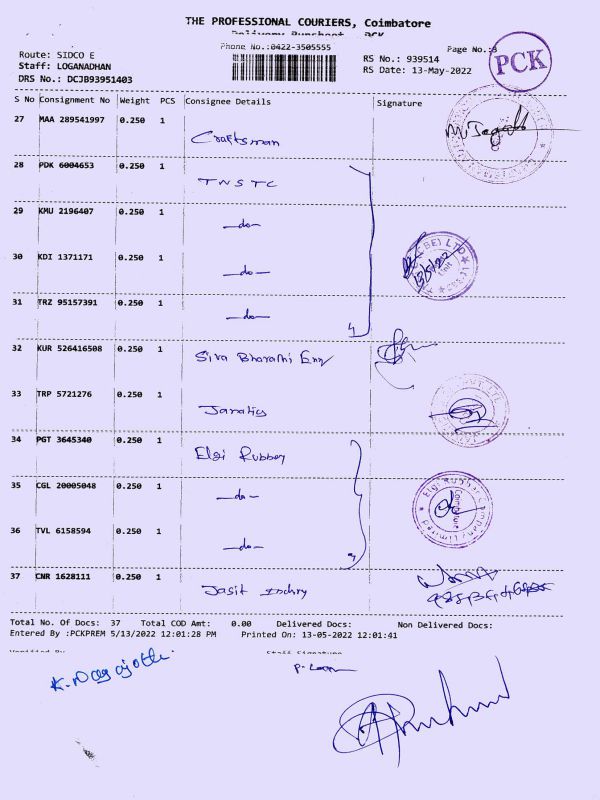 THE PROFESSIONAL COURIERS, Coimbatore
Delivery Runsheet PCK
Phone No.:0422-3505555
Page No.:3
PCK
Route: SIDCO E
Staff: LOGANADHAN
DRS No.: DCJB93951403
RS No.: 939514
RS Date: 13-May-2022
S No Consignment No Weight PCS Consignee Details Signature
27 MAA 289541997 0.250 1 Craftsman
28 PDK 6004653 0.250 1 TNSTC
29 KMU 2196407 0.250 1 —do—
30 KDI 1371171 0.250 1 —do—
31 TRZ 95157391 0.250 1 —do—
32 KUR 526416508 0.250 1 Siva Bharathi Eng
33 TRP 5721276 0.250 1
34 PGT 3645340 0.250 1 Elgi Rubber
35 CGL 20005048 0.250 1 —do—
36 TVL 6158594 0.250 1 —do—
37 CNR 1628111 0.250 1
Total No. Of Docs: 37 Total COD Amt: 0.00 Delivered Docs: Non Delivered Docs:
Entered By :PCKPREM 5/13/2022 12:01:28 PM Printed On: 13-05-2022 12:01:41
Verified By Staff Signature